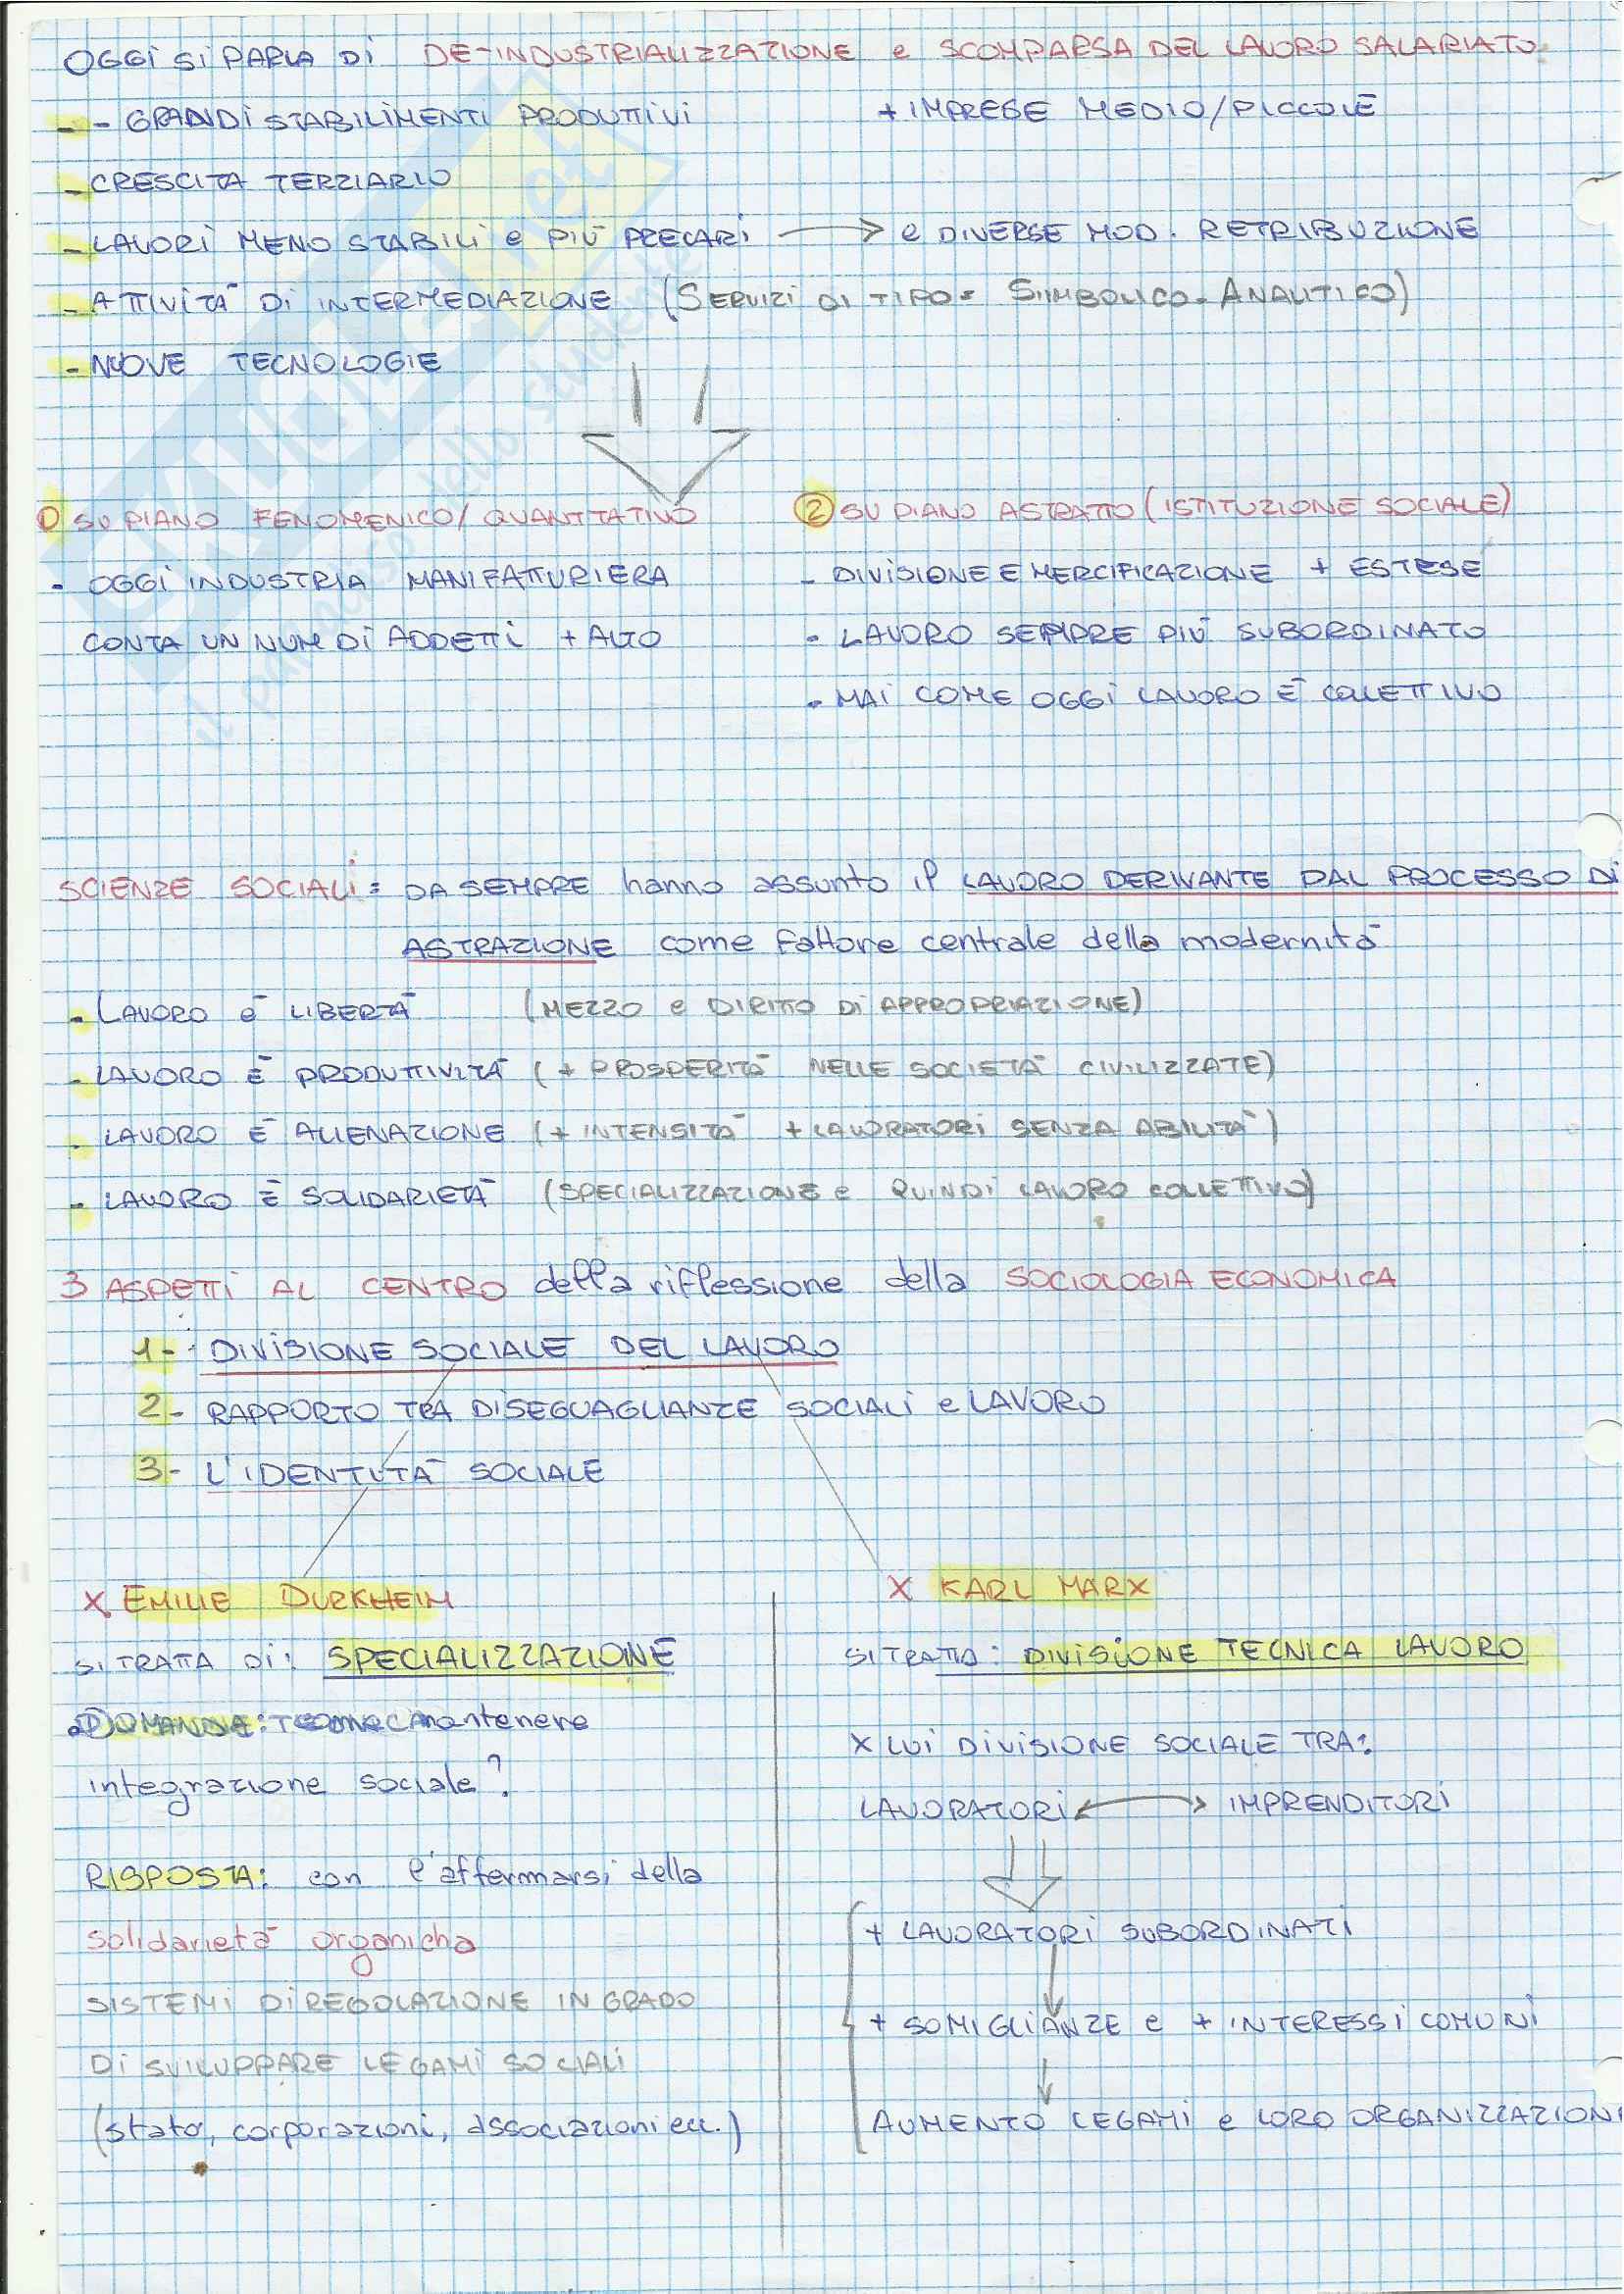 OGGI SI PARLA DI DE-INDUSTRIALIZZAZIONE e SCOMPARSA DEL LAVORO SALARIATO
- - GRANDI STABILIMENTI PRODUTTIVI + IMPRESE MEDIO/PICCOLE
- CRESCITA TERZIARIO
- LAVORI MENO STABILI e PIÙ PRECARI → e DIVERSE MOD. RETRIBUZIONE
- ATTIVITÀ DI INTERMEDIAZIONE (SERVIZI DI TIPO: SIMBOLICO-ANALITICO)
- NUOVE TECNOLOGIE
1) SU PIANO FENOMENICO/QUANTITATIVO
- OGGI INDUSTRIA MANIFATTURIERA
CONTA UN NUM DI ADDETTI + ALTO
2) SU PIANO ASTRATTO (ISTITUZIONE SOCIALE)
- DIVISIONE E MERCIFICAZIONE + ESTESE
- LAVORO SEMPRE PIÙ SUBORDINATO
- MAI COME OGGI LAVORO È COLLETTIVO
SCIENZE SOCIALI: DA SEMPRE hanno assunto il LAVORO DERIVANTE DAL PROCESSO DI
ASTRAZIONE come fattore centrale della modernità
- LAVORO è LIBERTÀ (MEZZO e DIRITTO DI APPROPRIAZIONE)
- LAVORO È PRODUTTIVITÀ (+ PROSPERITÀ NELLE SOCIETÀ CIVILIZZATE)
- LAVORO È ALIENAZIONE (+ INTENSITÀ + LAVORATORI SENZA ABILITÀ)
- LAVORO È SOLIDARIETÀ (SPECIALIZZAZIONE e QUINDI LAVORO COLLETTIVO)
3 ASPETTI AL CENTRO della riflessione della SOCIOLOGIA ECONOMICA
1- DIVISIONE SOCIALE DEL LAVORO
2- RAPPORTO TRA DISEGUAGLIANZE SOCIALI e LAVORO
3- L'IDENTITÀ SOCIALE
X EMILIE DURKHEIM
SI TRATTA DI: SPECIALIZZAZIONE
DOMANDA: come mantenere
integrazione sociale?
RISPOSTA: con l'affermarsi della
solidarietà organicha
SISTEMI DI REGOLAZIONE IN GRADO
DI SVILUPPARE LEGAMI SOCIALI
(stato, corporazioni, associazioni ecc.)
X KARL MARX
SI TRATTA: DIVISIONE TECNICA LAVORO
X LUI DIVISIONE SOCIALE TRA:
LAVORATORI ↔ IMPRENDITORI
+ LAVORATORI SUBORDINATI
+ SOMIGLIANZE e + INTERESSI COMUNI
AUMENTO LEGAMI e LORO ORGANIZZAZIONI